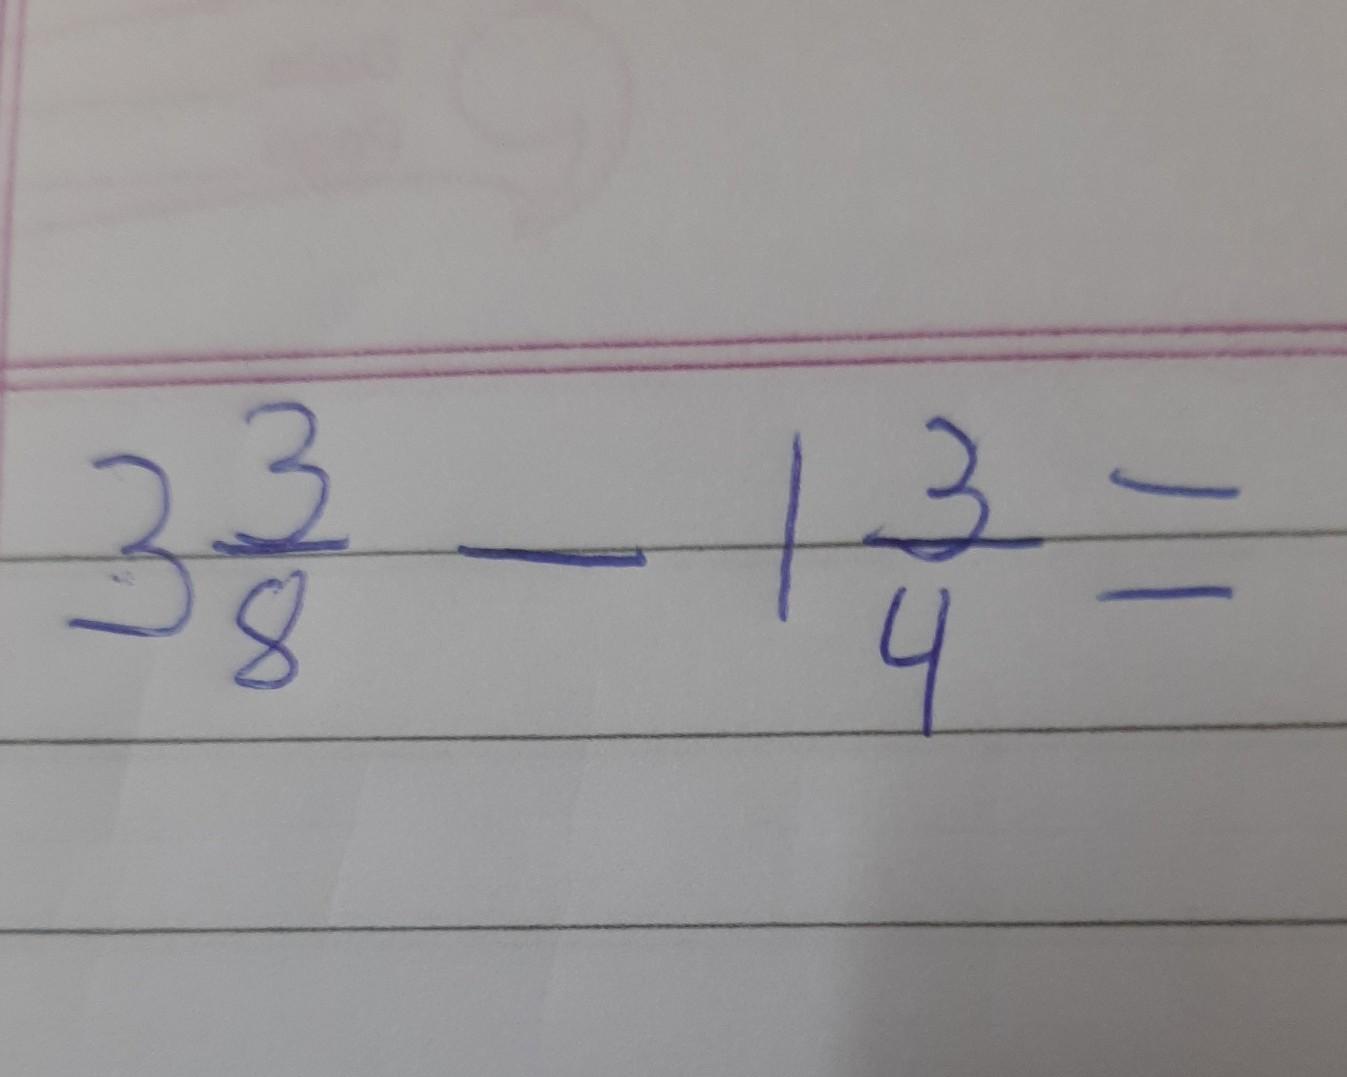 3 3/8 — 1 3/4 =